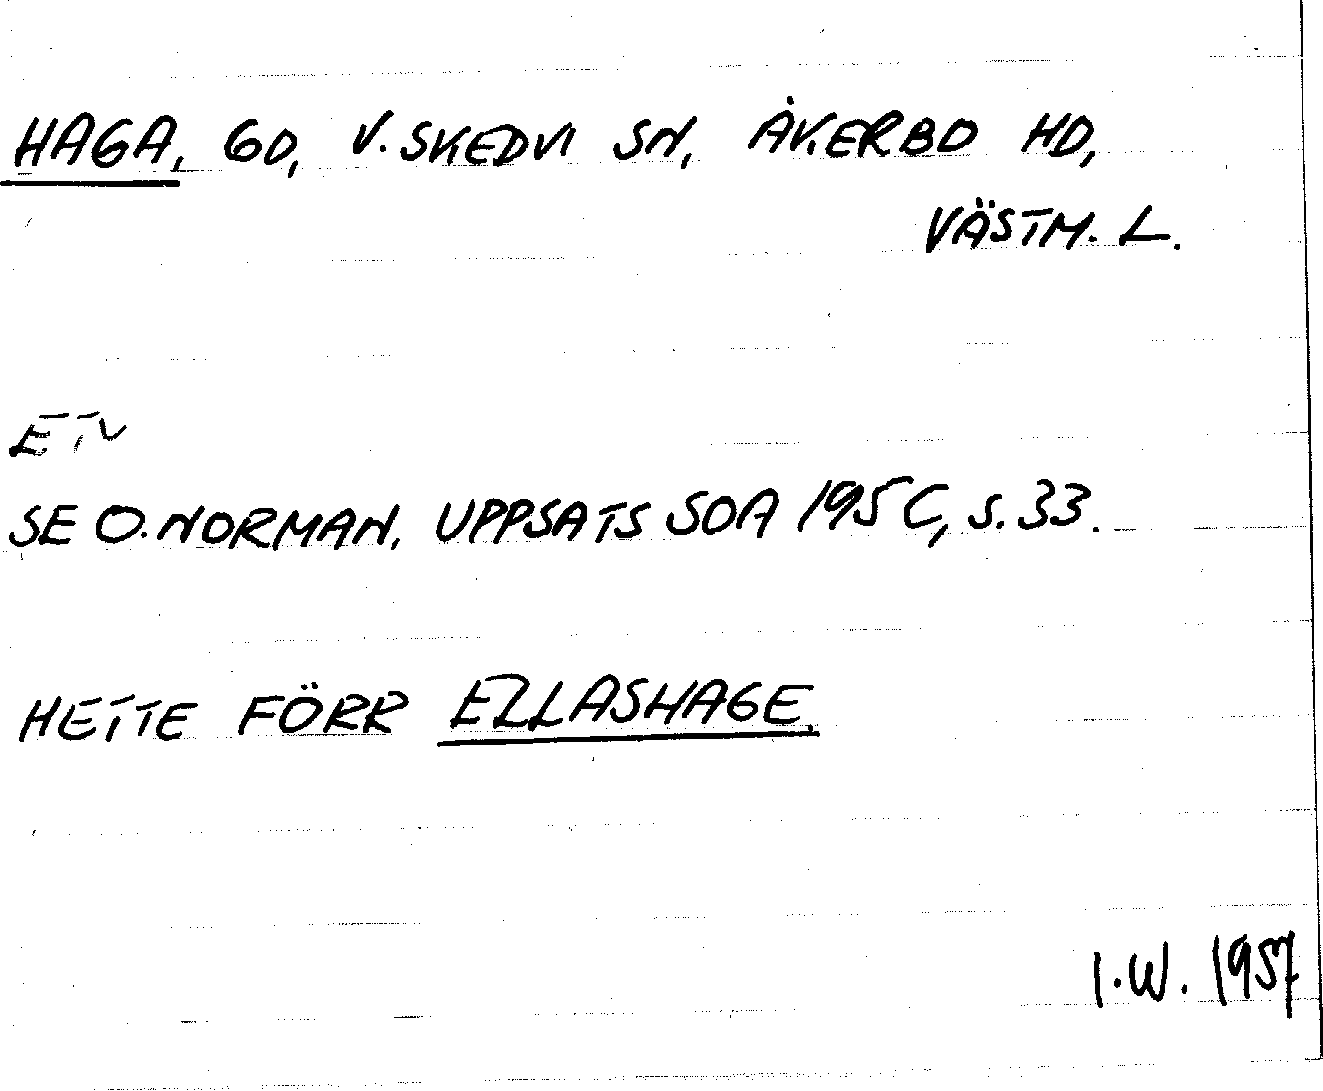 HAGA, GD, V. SKEDVI SN, ÅKERBO HD,
VÄSTM. L.
ETN
SE O. NORMAN, UPPSATS SOA 1950, S. 33.
HETTE FÖRR ELLASHAGE.
I.W. 1957